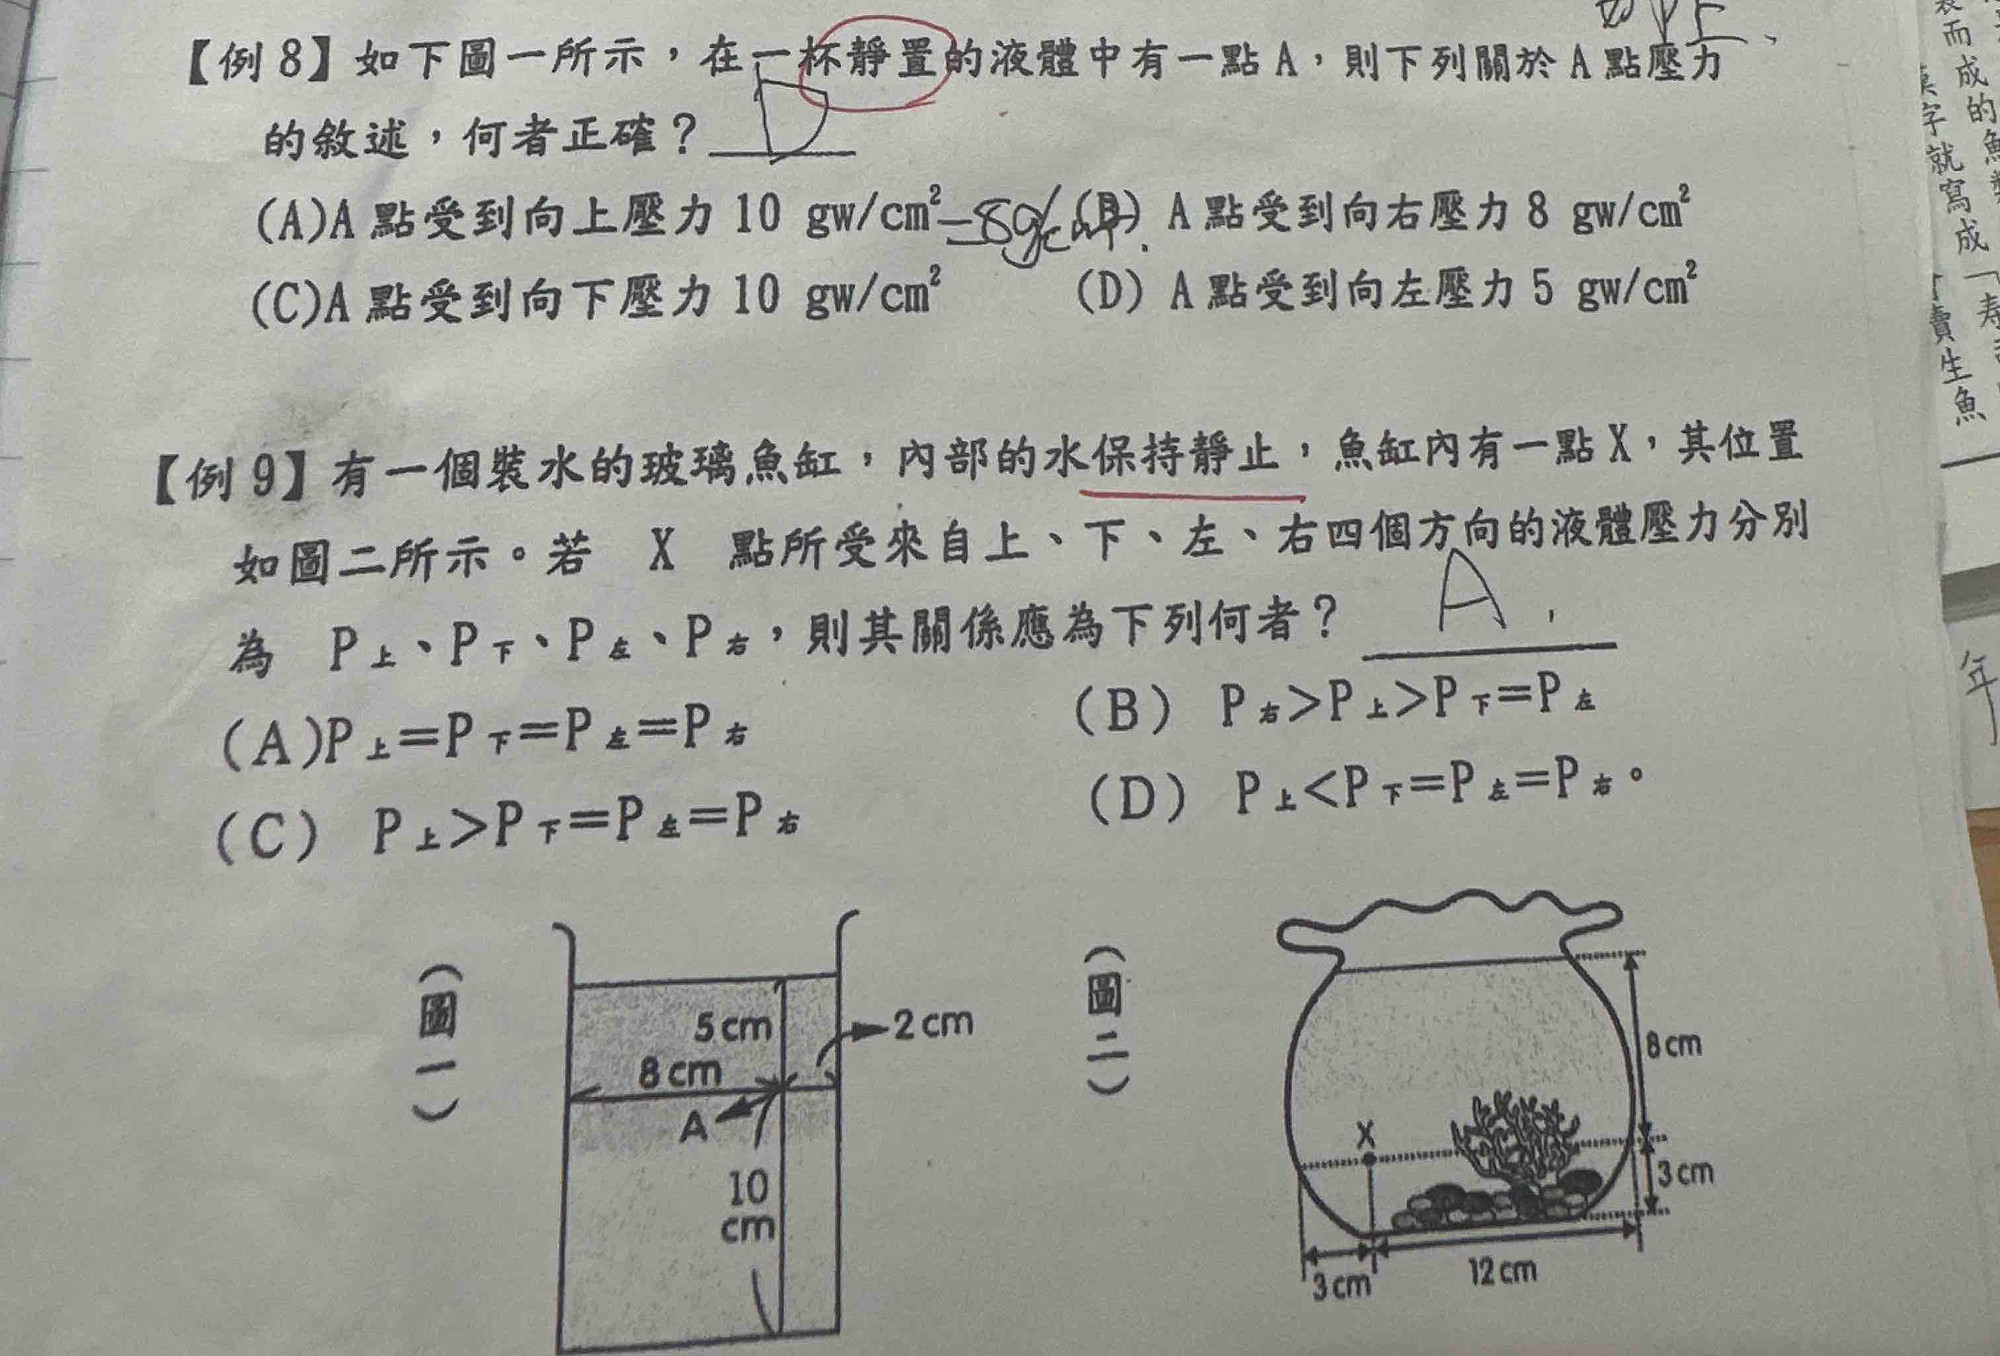 【例 8】如下圖一所示，在一杯靜置的液體中有一點 A，則下列關於 A 點壓力
的敘述，何者正確？ D
(A)A 點受到向上壓力 10 gw/cm² (B) A 點受到向右壓力 8 gw/cm²
(C)A 點受到向下壓力 10 gw/cm² (D) A 點受到向左壓力 5 gw/cm²
【例 9】有一個裝水的玻璃魚缸，內部的水保持靜止，魚缸內有一點 X，其位置
如圖二所示。若 X 點所受來自上、下、左、右四個方向的液體壓力分別
為 P上、P下、P左、P右，則其關係應為下列何者？ A
(A)P上=P下=P左=P右 (B) P右>P上>P下=P左
(C) P上>P下=P左=P右 (D) P上<P下=P左=P右。
(圖一)
5 cm
2 cm
8 cm
A
10
cm
(圖二)
8 cm
X
3 cm
3 cm
12 cm
裝而成的魚
漢字就寫成「壽
賣生魚
年